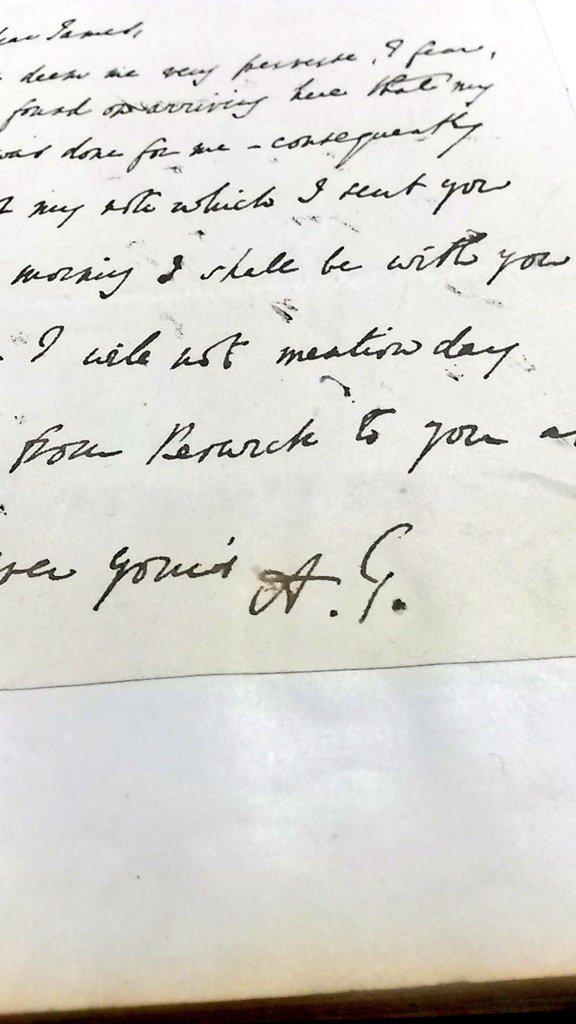 James,
deem me very perverse, I fear,
found on arriving here that my
was done for me - consequently
my note which I sent you
morning I shall be with you
I will not mention day
from Berwick to you
yours A.G.